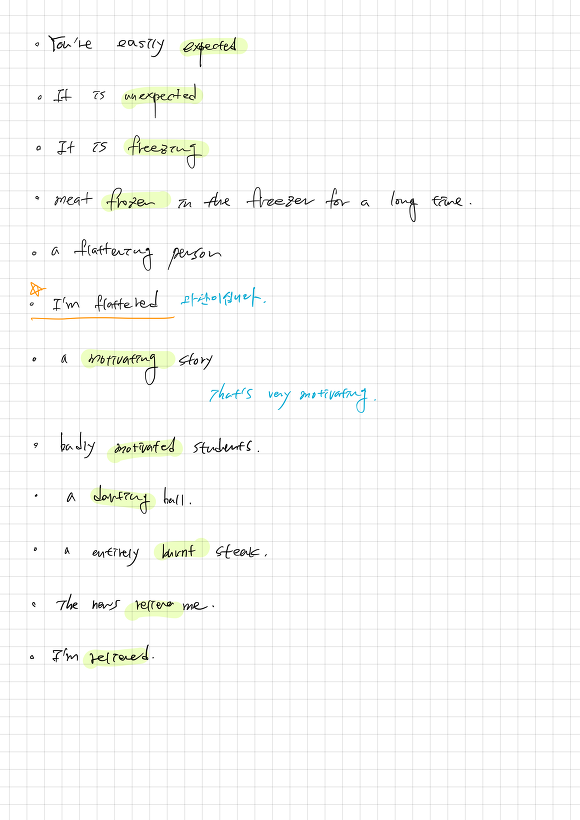 • You're easily expected
• It is unexpected
• It is freezing
• meat frozen in the freezer for a long time.
• a flattering person
☆
• I'm flattered 과찬이십니다.
• a motivating story
That's very motivating.
• badly motivated students.
• a dancing hall.
• a entirely burnt steak.
• The news relieve me.
• I'm relieved.